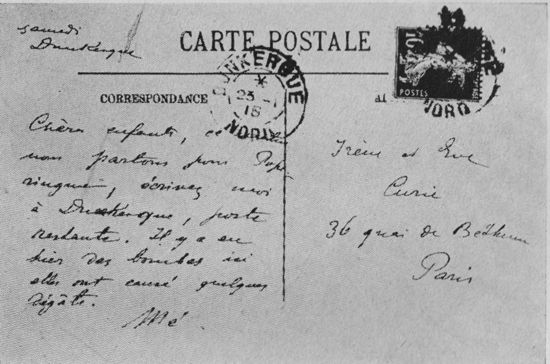 samedi
Dunkerque
CARTE POSTALE
DUNKERQUE
23 - 1
15
NORD
POSTES
NORD
CORRESPONDANCE
Chères enfants, ce
nous partons pour Pope
ringuem, écrivez moi
à Dunkerque, poste
restante. Il y a eu
hier des bombes ici
elles ont causé quelques
dégâts.
Mé
Irène et Eve
Curie
36 quai de Béthune
Paris